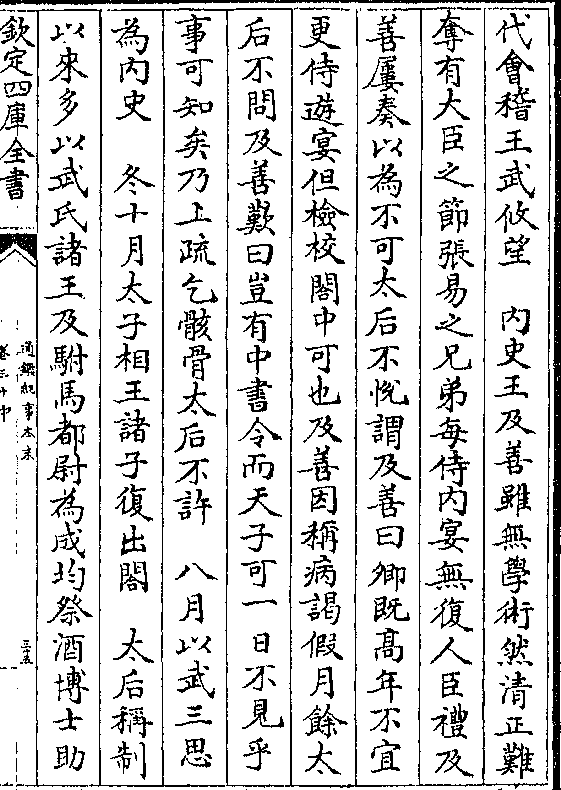 代會稽王武攸望　内史王及善雖無學術然清正難
奪有大臣之節張易之兄弟每侍内宴無復人臣禮及
善屢奏以為不可太后不悅謂及善曰卿既髙年不宜
更侍遊宴但檢校閣中可也及善因稱病謁假月餘太
后不問及善歎曰豈有中書令而天子可一日不見乎
事可知矣乃上疏乞骸骨太后不許　八月以武三思
為内史　冬十月太子相王諸子復出閣　太后稱制
以來多以武氏諸王及駙馬都尉為成均祭酒博士助
欽定四庫全書
通鑑紀事本末
卷三十中
三五